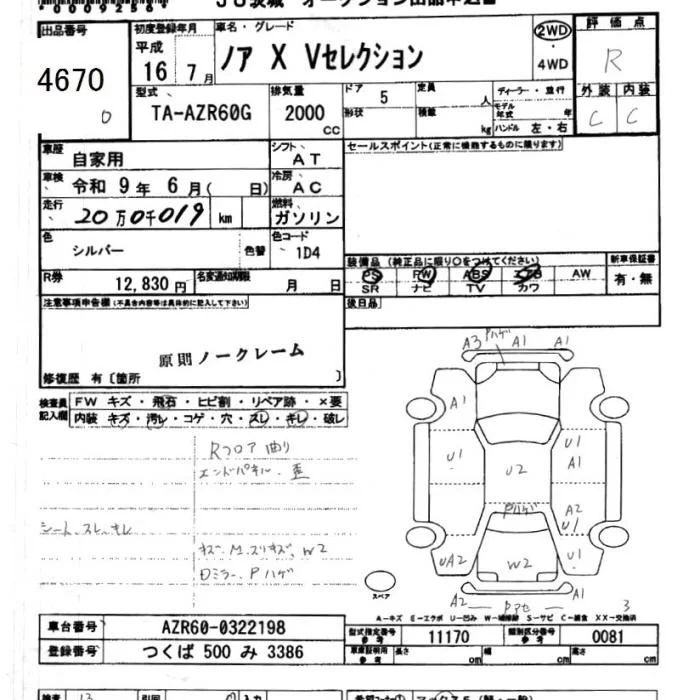 JU茨城 オークション出品申込書
出品番号
初度登録年月
車名・グレード
2WD
評価点
平成
4670
16 7月
ノア X Vセレクション
4WD
R
型式
排気量
ドア
5
定員
人
ディーラー・並行
外装 内装
0
TA-AZR60G
2000
cc
形状
積載
kg
モデル年式
年
ハンドル 左・右
C C
車歴
自家用
シフト
AT
セールスポイント(正常に機能するものに限ります)
車検
令和 9年 6月( 日)
冷房
AC
走行
20万0千019 km
燃料
ガソリン
色
シルバー
色替
色コード
1D4
装備品 (純正品に限り○をつけてください)
新車保証書
PS PW ABS エアB AW
有・無
R券
12,830円
名変通知期限
月 日
SR ナビ TV カワ
注意事項申告欄(不具合内容等は具体的に記入して下さい)
後日品
原則 ノークレーム
修復歴 有〔箇所 〕
A3 Pハゲ A1 A1
検査員記入欄
FW キズ・飛石・ヒビ割・リペア跡・×要
内装 キズ・汚レ・コゲ・穴・スレ・キレ・破レ
A1
Rフロア曲り
エンドパネル歪
U1 U2 U1 A1
Pハゲ
A2
U1
シートスレ・キレ
キズ、M.スリキズ、W2
ロミラー、Pハゲ
UA2 W2 U1
スペア
A2 Pアセ A1
3
A-キズ E-エクボ U-凹み W-補修跡 S-サビ C-腐食 XX-交換済
車台番号
AZR60-0322198
型式指定番号
参考
11170
類別区分番号
参考
0081
登録番号
つくば 500 み 3386
車庫証明用
参考
長さ
cm
幅
cm
高さ
cm